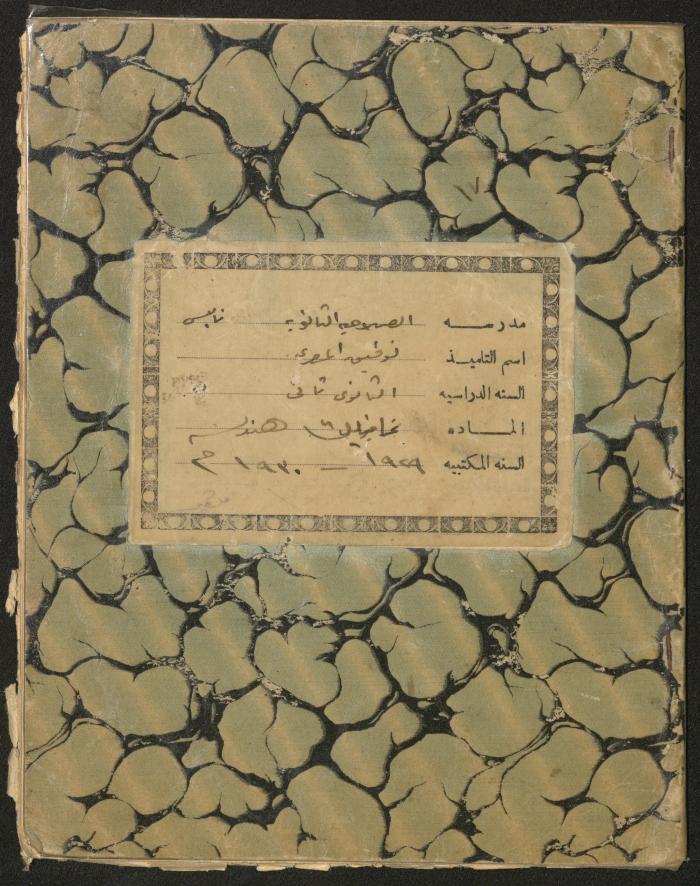 ١٧
مدرسه الصلاحيه الثانويه نابلس
اسم التلميذ توفيق المصري
السنه الدراسيه الثانوي ثاني
الماده هندسه
السنه المكتبيه ١٩٢٩ – ١٩٣٠ م